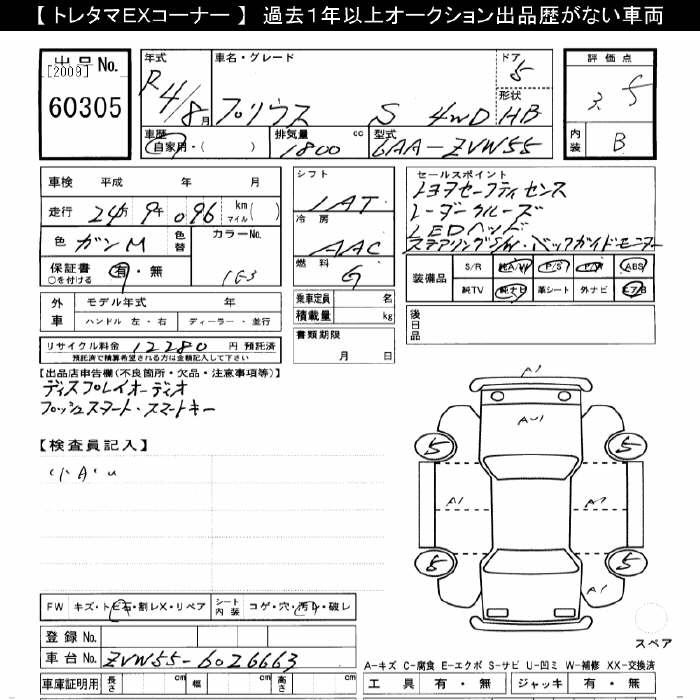 【 トレタマEXコーナー 】 過去1年以上オークション出品歴がない車両
出品 No.
[2009]
60305
年式
R4/8月
車名・グレード
プリウス S 4WD
ドア
5
形状
HB
評価点
3.5
内装
B
車歴
自家用・( )
排気量
1800 cc
型式
6AA-ZVW55
車検 平成 年 月
走行 24万9千096 km マイル( )
色 ガンM
色替
カラーNo.
1G3
保証書 有・無
○を付ける
シフト
IAT
冷房
AAC
燃料
G
乗車定員 名
積載量 kg
書類期限
月 日
セールスポイント
トヨタセーフティセンス
レーダークルーズ
LEDヘッド
ステアリングS/W・バックガイドモニター
装備品
S/R 純A/W P/S P/W ABS
純TV 純ナビ 革シート 外ナビ エアB
後日品
外車
モデル年式 年
ハンドル 左・右 ディーラー・並行
リサイクル料金 12280 円 預託済
預託済で精算希望される方は金額記入して下さい
【出品店申告欄(不良箇所・欠品・注意事項等)】
ディスプレイオーディオ
プッシュスタート・スマートキー
【検査員記入】
小A・U
A1
A・U1
5
5
A1
5
5
スペア
FW キズ・トビ石・割レX・リペア
シート内装 コゲ・穴・汚レ・破レ
登録 No.
車台 No. ZVW55-6026663
車庫証明用 長さ cm 幅 cm 高さ cm
A-キズ C-腐食 E-エクボ S-サビ U-凹ミ W-補修 XX-交換済
工具 有・無 ジャッキ 有・無